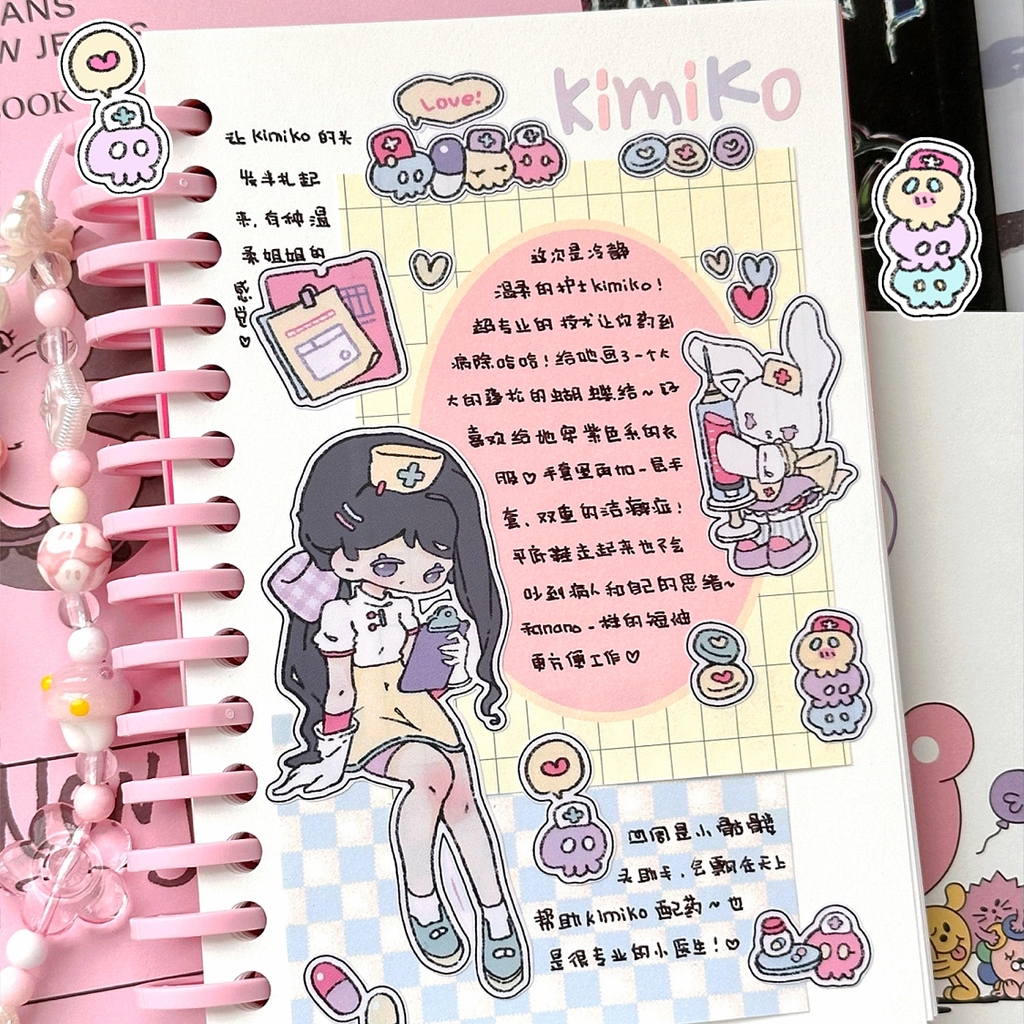 kimiko
Love!
让 kimiko 的头
发半扎起
来,有种温
柔姐姐的
感觉♡
这次是冷静
温柔的护士kimiko!
超专业的技术让你药到
病除哈哈!给她画了一个大
大的蓬松的蝴蝶结~好
喜欢给她穿紫色系的衣
服♡手套里再加一层手
套,双重的洁癖症!
平底鞋走起来也不会
吵到病人和自己的思绪~
和nano一样的短袖
更方便工作♡
四周是小骷髅
头助手,会飘在天上
帮助kimiko配药~也
是很专业的小医生!♡
ANS
W JE
OOK